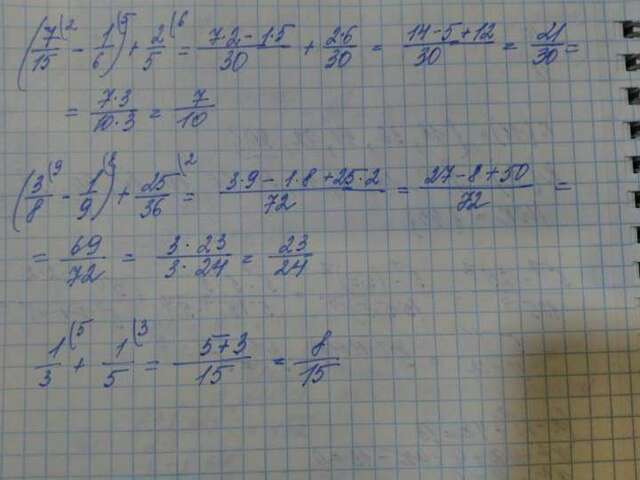 (7/15⁽² - 1/6)⁽⁵ + 2/5⁽⁶ = 7·2-1·5/30 + 2·6/30 = 14-5+12/30 = 21/30 =
= 7·3/10·3 = 7/10
(3/8⁽⁹ - 1/9)⁽⁸ + 25/36⁽² = 3·9-1·8+25·2/72 = 27-8+50/72 =
= 69/72 = 3·23/3·24 = 23/24
1/3⁽⁵ + 1/5⁽³ = 5+3/15 = 8/15